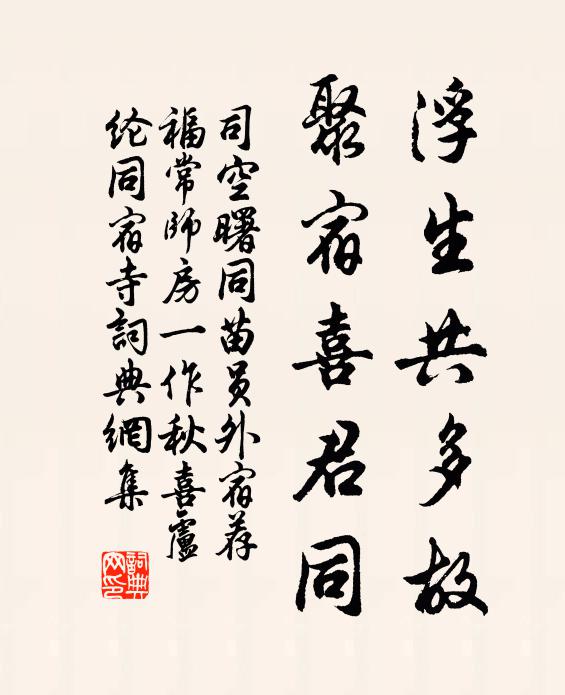 浮生共多故
聚宿喜君同
司空曙同苗员外宿荐
福常師房一作秋喜盧
纶同宿寺詞典網集
詞典网印